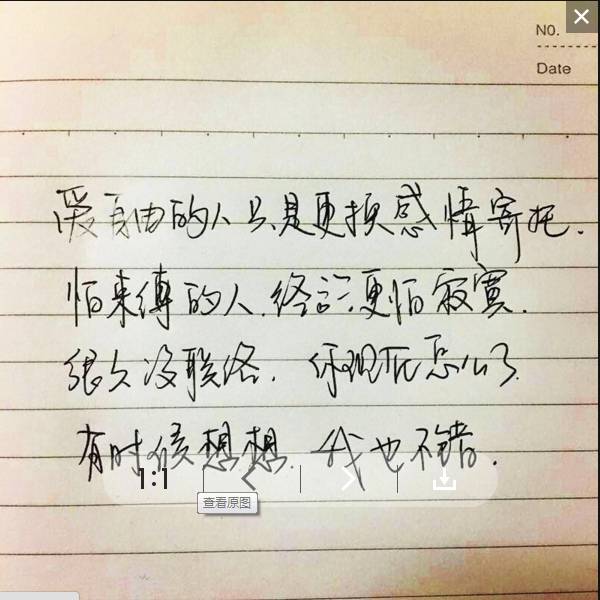 N0.
Date
爱自由的人只是更换感情寄托.
怕束缚的人.终究更怕寂寞.
很久没联络. 你现在怎么了
有时候想想. 我也不错.
1:1
查看原图